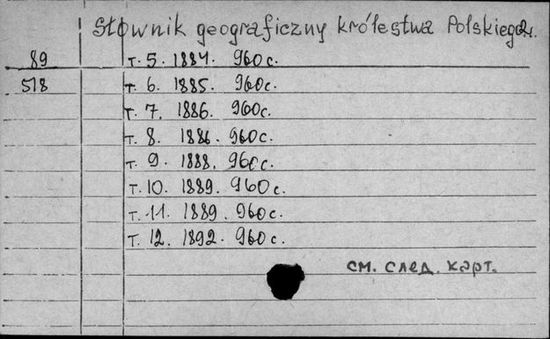 Słownik geograficzny królestwa Polskiego
89 т. 5. 1884. 960с.
518 т. 6. 1885. 960с.
т. 7. 1886. 960с.
т. 8. 1886. 960с.
т. 9. 1888. 960с.
т. 10. 1889. 960с.
т. 11. 1889. 960с.
т. 12. 1892. 960с.
см. след. карт.